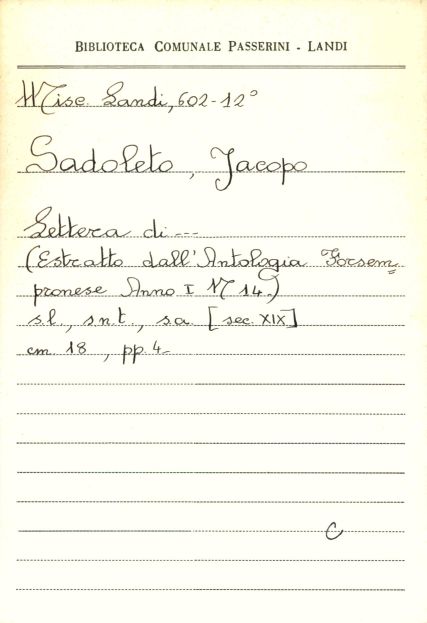 BIBLIOTECA COMUNALE PASSERINI - LANDI
Misc. Landi, 602-12°
Sadoleto, Jacopo
Lettera di ---
(Estratto dall'Antologia Forsem=
pronese Anno I N 14.)
s.l., s.n.t., s.a. [sec. XIX]
cm. 18, pp. 4-
C